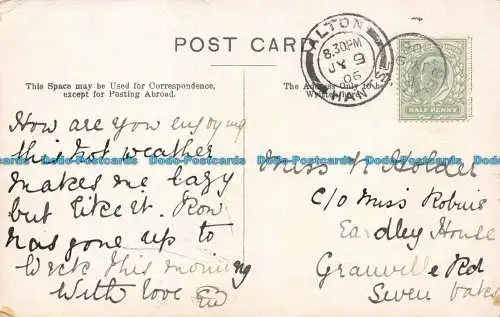 POST CARD
This Space may be Used for Correspondence,
except for Posting Abroad.
The Address Only to be
Written here.
ALTON
8.30PM
JY 9
06
HANTS
HALF PENNY
How are you enjoying
this hot weather
makes me lazy
but like it. Ron
has gone up to
Work this morning
With love
Miss Holder
C/o Miss Robins
Eardley House
Granville Rd
Seven Oaks
Dodo-Postcards Dodo-Postcards Dodo-Postcards Dodo-Postcards